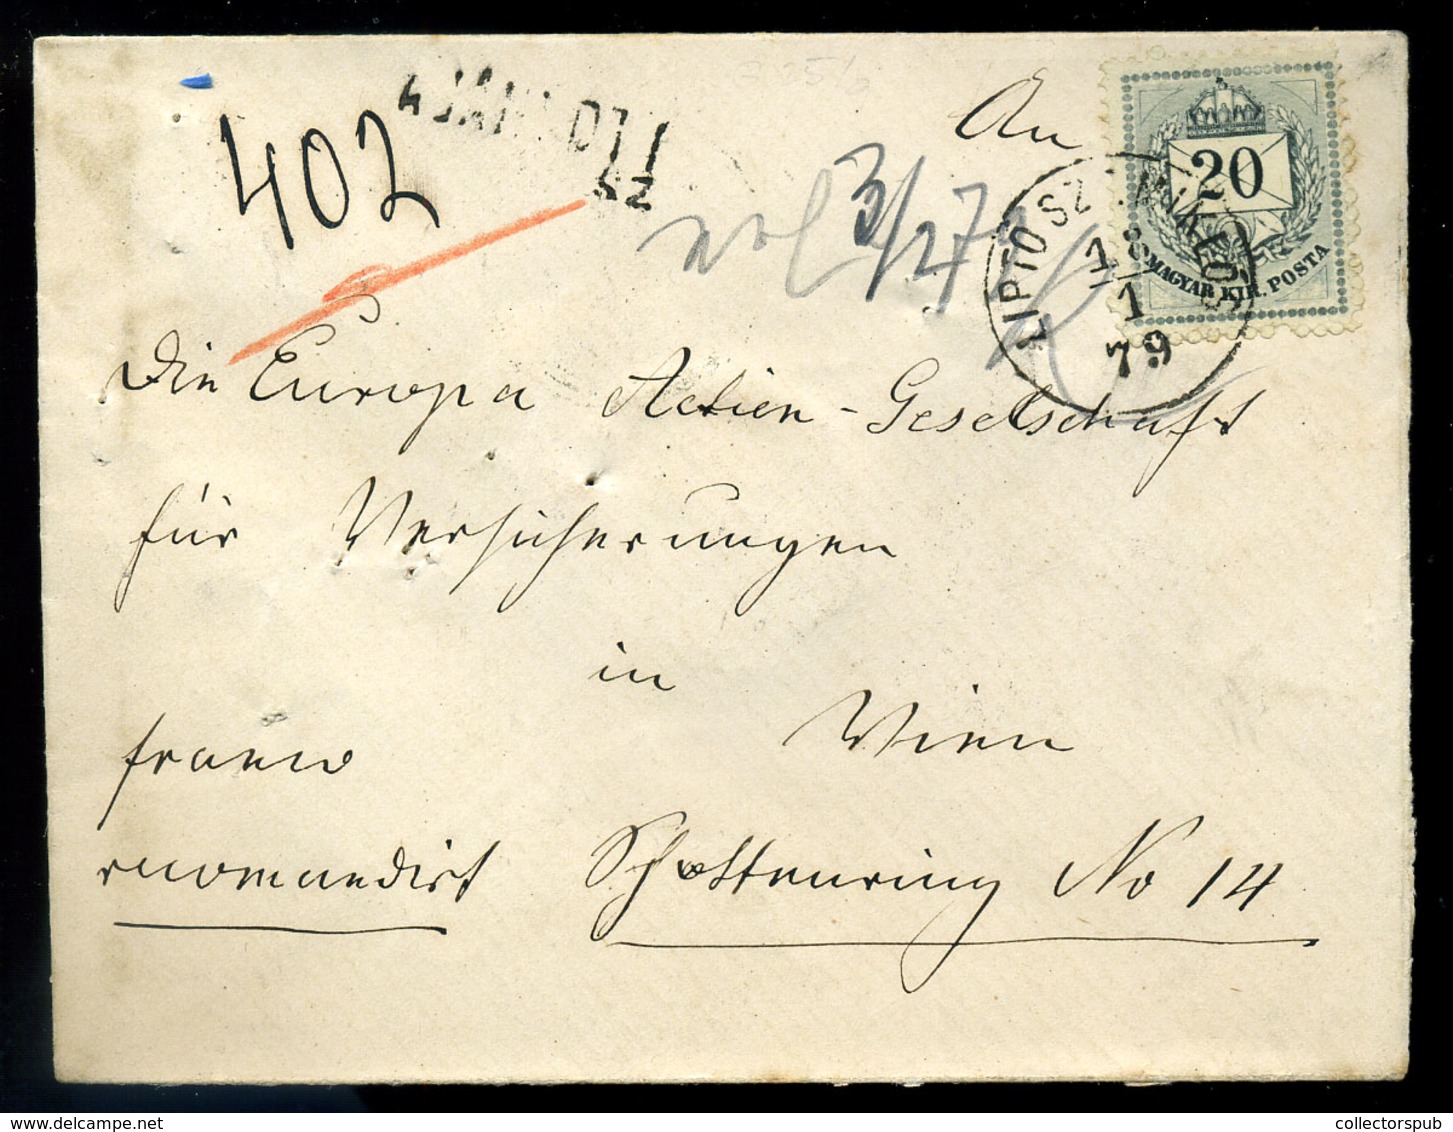 402
AJÁNLOTT
An
20
MAGYAR KIR. POSTA
LIPTO SZ. MIKLOS
18
1
79
3/2 79
Die Europa Actien-Gesellschaft
für Versicherungen
in
Wien
franco
recomandirt Schottenring No 14
collectorspub